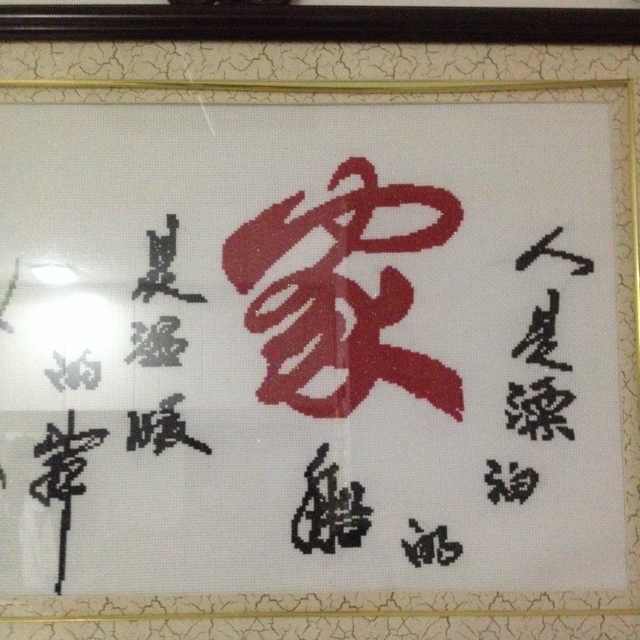 人是漂泊
的
船
家
是温暖
的岸